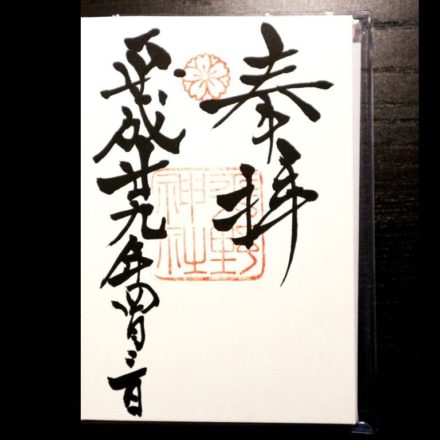 奉拝
平成廿九年四月三日
野
神社